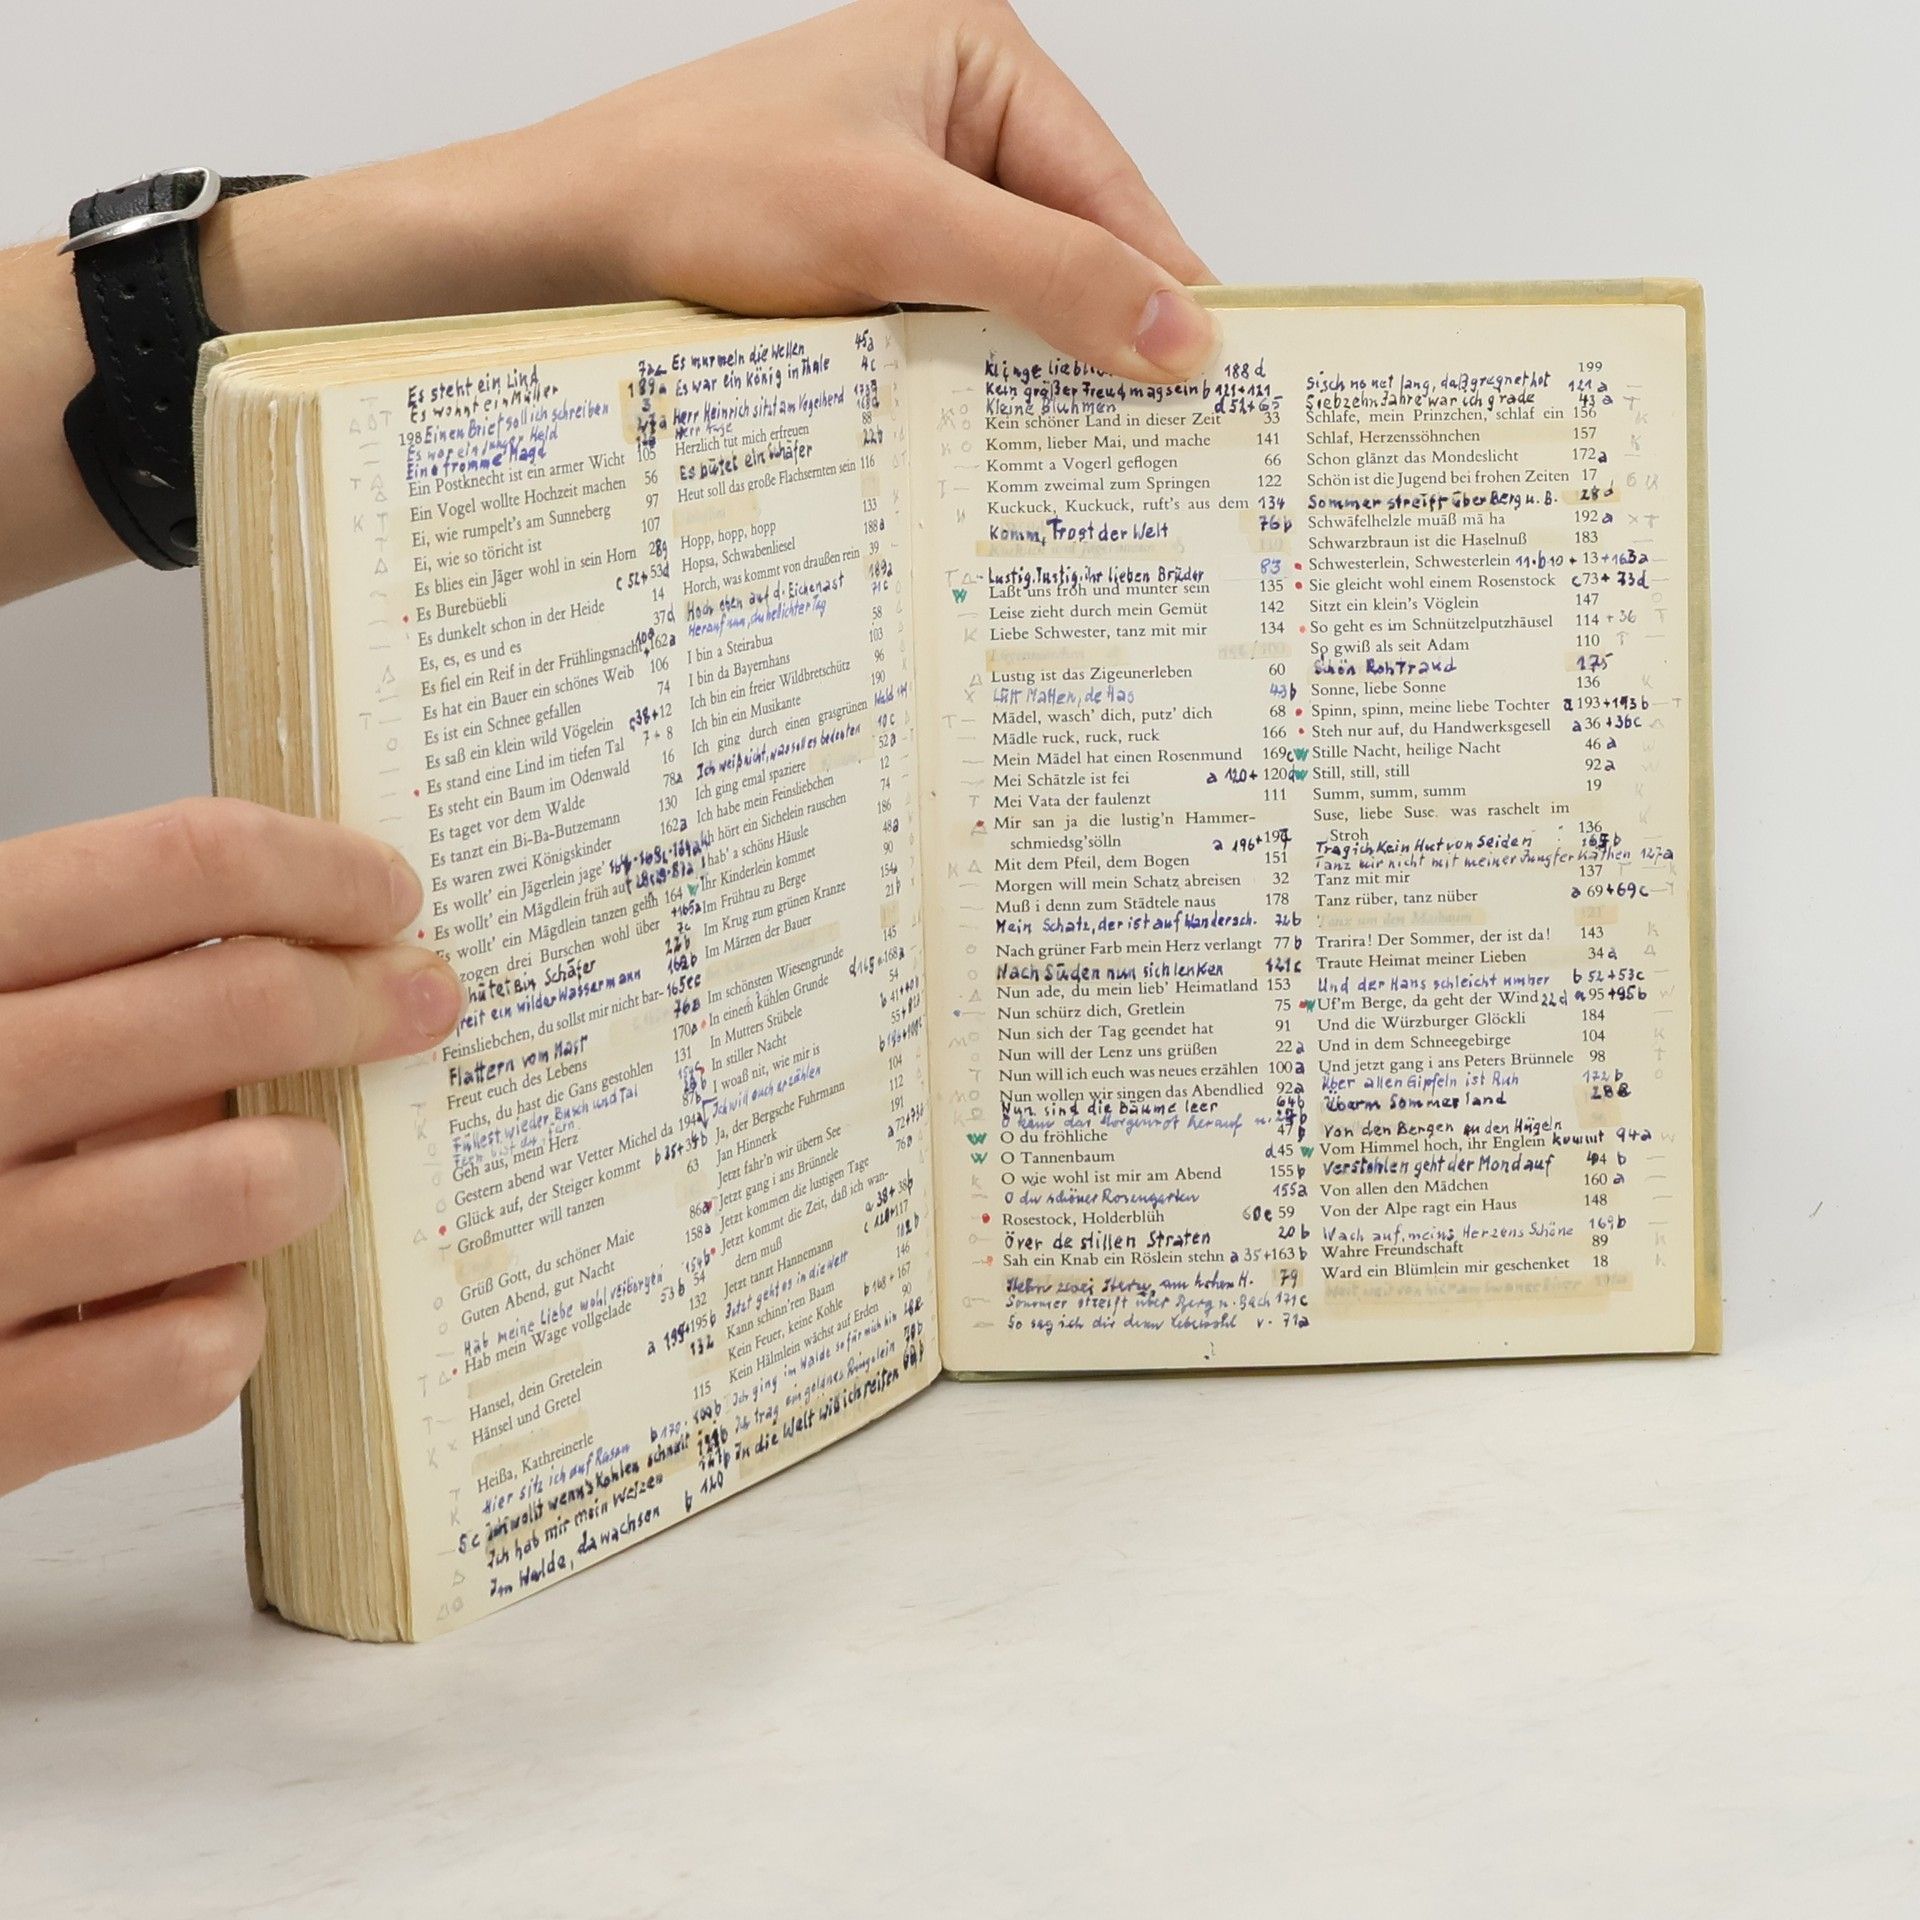 Es steht ein Lind
Es wohnt ein Müller
198 Einen Brief soll ich schreiben
Es war ein junger Held
Eine fromme Magd
Ein Postknecht ist ein armer Wicht 105
Ein Vogel wollte Hochzeit machen 56
Ei, wie rumpelt's am Sunneberg 97
Ei, wie so töricht ist 107
Es blies ein Jäger wohl in sein Horn
Es Burebüebli c 52+53d
Es dunkelt schon in der Heide 14
Es, es, es und es 37d
Es fiel ein Reif in der Frühlingsnacht 162a
Es hat ein Bauer ein schönes Weib 106
Es ist ein Schnee gefallen 74
Es saß ein klein wild Vögelein c38+12
Es stand eine Lind im tiefen Tal 7+8
Es steht ein Baum im Odenwald 16
Es taget vor dem Walde 78a
Es tanzt ein Bi-Ba-Butzemann 130
Es waren zwei Königskinder 162a
Es wollt' ein Jägerlein jage'
Es wollt' ein Mägdlein früh auf
Es wollt' ein Mägdlein tanzen gehn 164
zogen drei Burschen wohl über +165a
hütet ein Schäfer 22b
freit ein wilder Wassermann 162b
Feinsliebchen, du sollst mir nicht bar- 165cc
Flattern vom Mast 76a
Freut euch des Lebens 170a
Fuchs, du hast die Gans gestohlen 131
Füllest wieder Busch und Tal
Geh aus, mein Herz 87b
Gestern abend war Vetter Michel da 194a
Glück auf, der Steiger kommt b 35+34b
Großmutter will tanzen 63
Grüß Gott, du schöner Maie 86a
Guten Abend, gut Nacht 158a
Hab meine Liebe wohl verborgen 154b
Hab mein Wage vollgelade 53b 54
132
Hansel, dein Gretelein a 194+195b
Hänsel und Gretel 132
Heißa, Kathreinerle 115
Hier sitz ich auf Rasen
Ich wollt wenn's Kohlen schneit
5c Ich hab mir mein Weizen
Im Walde, da wachsen b 120
Es murmeln die Wellen 45a
Es war ein König in Thule 4c
Herr Heinrich sitzt am Vogelherd
Herzlich tut mich erfreuen 88
Es hütet ein Schäfer 22b
Heut soll das große Flachsernten sein 116
Hopp, hopp, hopp 133
Hopsa, Schwabenliesel 188a
Horch, was kommt von draußen rein 39
Hoch oben auf d. Eichenast 189a
Herauf nun, du hellichter Tag 71c
I bin a Steirabua 58
I bin da Bayernhans 103
Ich bin ein freier Wildbretschütz 96
Ich bin ein Musikante 190
Ich ging durch einen grasgrünen Wald
Ich weiß nicht, was soll es bedeuten 10c
Ich ging emal spaziere 52a
Ich habe mein Feinsliebchen 12
Ich hört ein Sichelein rauschen 74
Ich hab' a schöns Häusle 186
Ihr Kinderlein kommet 48a
Im Frühtau zu Berge 90
Im Krug zum grünen Kranze 154a
Im Märzen der Bauer 21b
Im schönsten Wiesengrunde 145
In einem kühlen Grunde d 165+168a
In Mutters Stübele 54
In stiller Nacht
I woaß nit, wie mir is
Ich will euch erzählen
Ja, der Bergsche Fuhrmann 104
Jan Hinnerk 112
Jetzt fahr'n wir übern See 191
Jetzt gang i ans Brünnele a 72+73b
Jetzt kommen die lustigen Tage 76a
Jetzt kommt die Zeit, daß ich wan-
dern muß a 38+38b
Jetzt tanzt Hannemann
Jetzt geht es in die Welt 102b
Kann schinn'ren Baam 146
Kein Feuer, keine Kohle b 168+167
Kein Hälmlein wächst auf Erden 90
Ich ging im Walde so für mich hin
Ich trag ein goldnes Ringelein
In die Welt will ich reiten
199
Klinge 188 d
Kein größer Freud mag sein b 121+121
Kleine Bluhmen d 52+65
Kein schöner Land in dieser Zeit 33
Komm, lieber Mai, und mache 141
Kommt a Vogerl geflogen 66
Komm zweimal zum Springen 122
Kuckuck, Kuckuck, ruft's aus dem 134
Komm, Trost der Welt 76b
Lustig, lustig, ihr lieben Brüder 83
Laßt uns froh und munter sein 135
Leise zieht durch mein Gemüt 142
Liebe Schwester, tanz mit mir 134
Lustig ist das Zigeunerleben 60
Lütt Matten, de Has 43b
Mädel, wasch' dich, putz' dich 68
Mädle ruck, ruck, ruck 166
Mein Mädel hat einen Rosenmund 169c
Mei Schätzle ist fei a 120+120d
Mei Vata der faulenzt 111
Mir san ja die lustig'n Hammer-
schmiedsg'sölln a 196+197
Mit dem Pfeil, dem Bogen 151
Morgen will mein Schatz abreisen 32
Muß i denn zum Städtele naus 178
Mein Schatz, der ist auf Wandersch. 72b
Nach grüner Farb mein Herz verlangt 77b
Nach Süden nun sich lenken 121c
Nun ade, du mein lieb' Heimatland 153
Nun schürz dich, Gretlein 75
Nun sich der Tag geendet hat 91
Nun will der Lenz uns grüßen 22a
Nun will ich euch was neues erzählen 100a
Nun wollen wir singen das Abendlied 92a
Nun sind die Bäume leer 64b
O käm das Morgenrot herauf
O du fröhliche 47b
O Tannenbaum d45
O wie wohl ist mir am Abend 155b
O du schöner Rosengarten 155a
Rosestock, Holderblüh 60c 59
Över de stillen Straten 20b
Sah ein Knab ein Röslein stehn a 35+163b
Stehn zwei Stern am hohen H. 79
Sommer streift über Berg u. Bach 171c
So sag ich dir denn Lebewohl v. 71a
Sisch no net lang, daß gregnet hot 121a
Siebzehn Jahre war ich grade 43a
Schlafe, mein Prinzchen, schlaf ein 156
Schlaf, Herzenssöhnchen 157
Schon glänzt das Mondeslicht 172a
Schön ist die Jugend bei frohen Zeiten 17
Sommer streift über Berg u. B. 28d
Schwäfelhelzle muäß mä ha 192a
Schwarzbraun ist die Haselnuß 183
Schwesterlein, Schwesterlein 11·b10+13+163a
Sie gleicht wohl einem Rosenstock c73+73d
Sitzt ein klein's Vöglein 147
So geht es im Schnützelputzhäusel 114+36
So gwiß als seit Adam 110
Schön Rohtraud 175
Sonne, liebe Sonne 136
Spinn, spinn, meine liebe Tochter a 193+193b
Steh nur auf, du Handwerksgesell a 36+36c
Stille Nacht, heilige Nacht 46a
Still, still, still 92a
Summ, summ, summ 19
Suse, liebe Suse, was raschelt im
Stroh 136
Trag ich kein Hut von Seiden
Tanz mir nicht mit meiner Jungfer Käthen 127a
Tanz mit mir 137
Tanz rüber, tanz nüber a 69+69c
Tanz um den Maibaum 121
Trarira! Der Sommer, der ist da! 143
Traute Heimat meiner Lieben 34a
Und der Hans schleicht umher b 52+53c
Uf'm Berge, da geht der Wind 22d a 95+95b
Und die Würzburger Glöckli 184
Und in dem Schneegebirge 104
Und jetzt gang i ans Peters Brünnele 98
Über allen Gipfeln ist Ruh 172b
Überm Sommerland 28a
Von den Bergen zu den Hügeln
Vom Himmel hoch, ihr Englein kommt 94a
Verstohlen geht der Mond auf
Von allen den Mädchen 160a
Von der Alpe ragt ein Haus 148
Wach auf, meins Herzens Schöne 169b
Wahre Freundschaft 89
Ward ein Blümlein mir geschenket 18